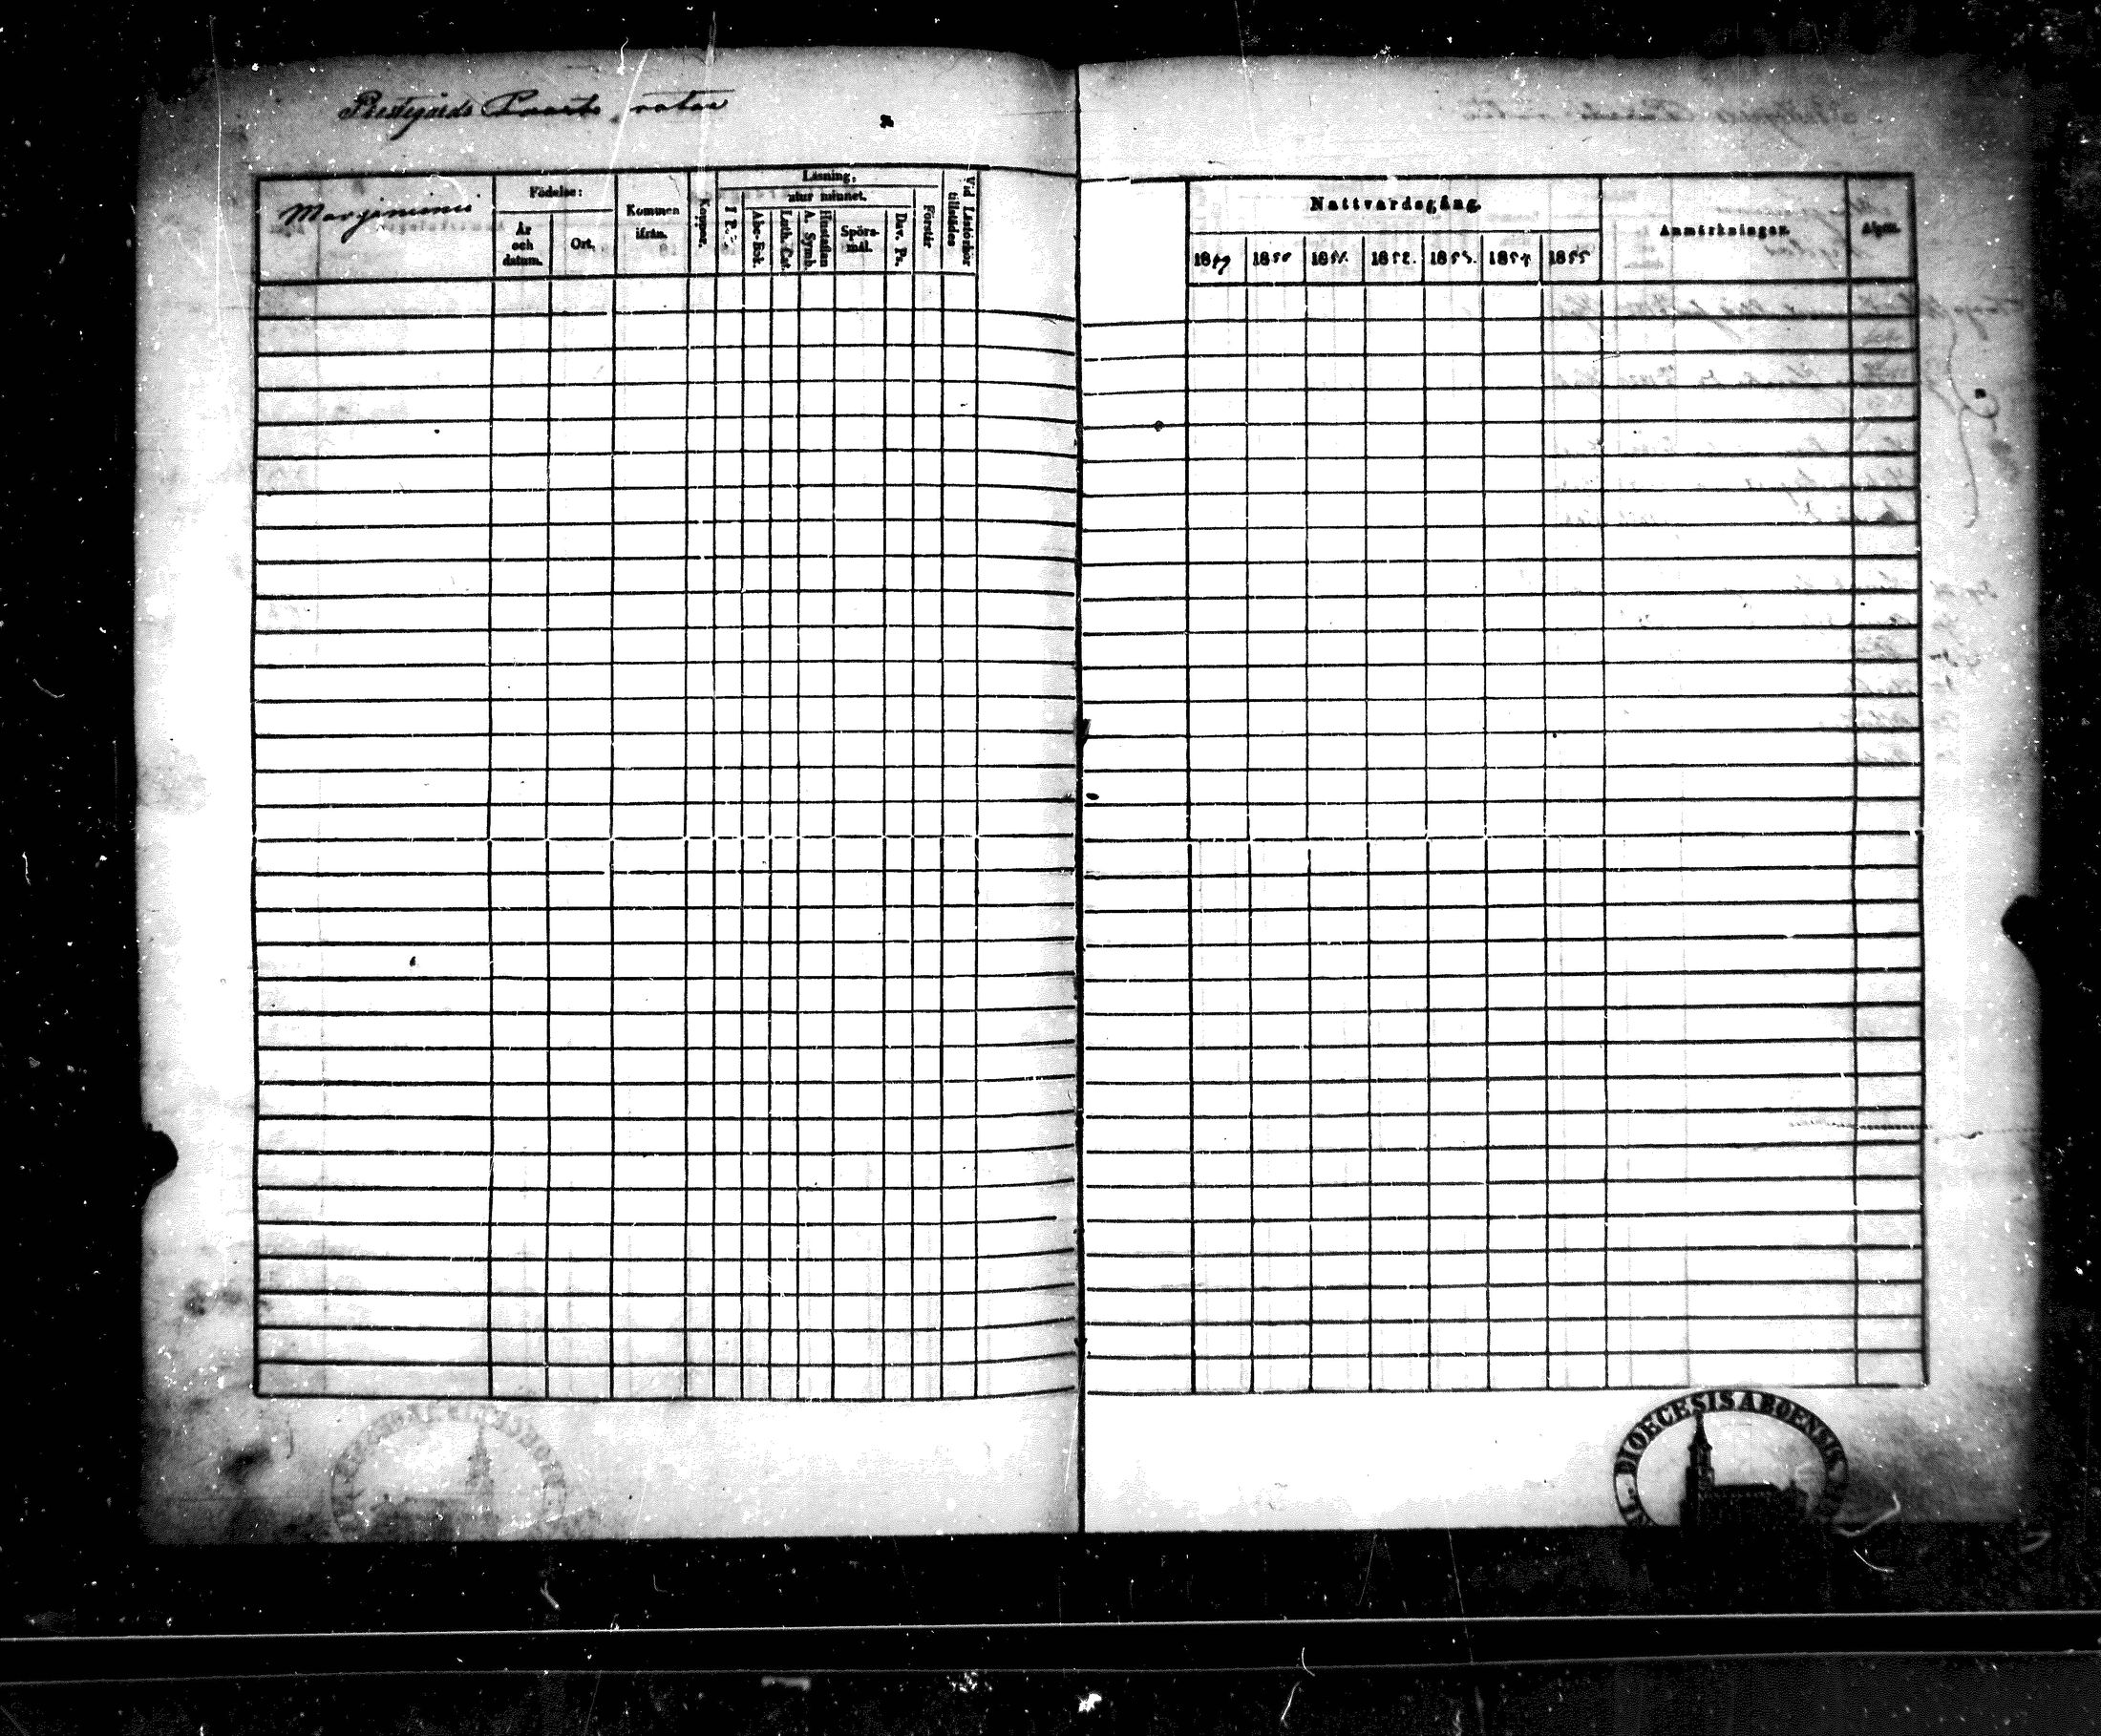 Prestgårds rotan
Marjaniemi
Födelse:
År och datum.
Ort.
Kommen ifrån.
Koppor.
Läsning,
utur minnet.
Abc-Bok.
Luth. Cat.
Hustaflan A. Symb.
Spörsmål.
Dav. Ps.
Förstår
Vid Läsförhör tillstädes
Nattvardsgång.
1849 1850 1851. 1852. 1853. 1854 1855
Anmärkningar.
Afgått.
DIOECESIS ABOENSIS